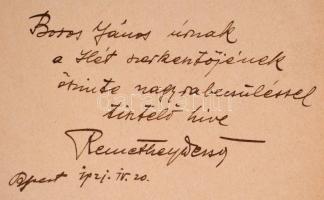 Boros János úrnak
a Hét szerkesztőjének
őszinte nagyrabecsüléssel
tisztelő híve
Remethey Dezső
Bpest IV. 20.